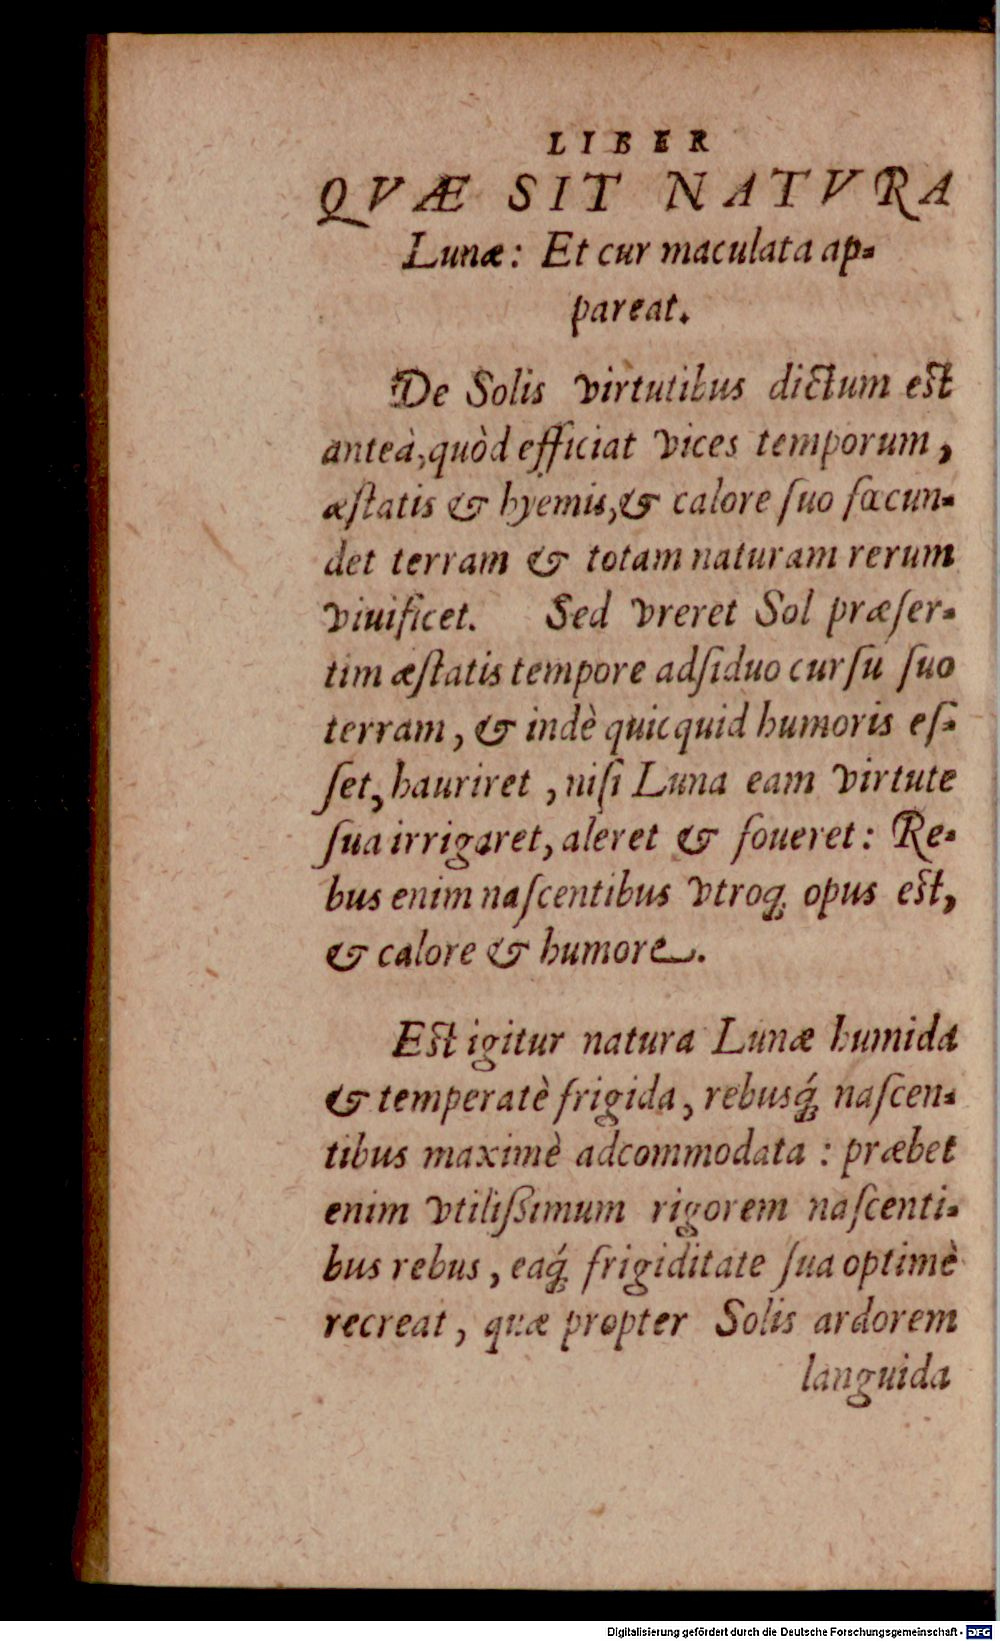 LIBER
QVÆ SIT NATVRA
Lunæ: Et cur maculata ap-
pareat.
De Solis virtutibus dictum est
anteà, quòd efficiat vices temporum,
æſtatis & hyemis, & calore ſuo fœcun-
det terram & totam naturam rerum
viuificet. Sed vreret Sol præſer-
tim æſtatis tempore adſiduo curſu ſuo
terram, & indè quicquid humoris eſ-
ſet, hauriret, niſi Luna eam virtute
ſua irrigaret, aleret & foueret: Re-
bus enim naſcentibus vtroq; opus est,
& calore & humore.
Est igitur natura Lunæ humida
& temperatè frigida, rebusq́; naſcen-
tibus maximè adcommodata: præbet
enim vtiliſsimum rigorem naſcenti-
bus rebus, eaq́; frigiditate ſua optimè
recreat, quæ propter Solis ardorem
languida
Digitalisierung gefördert durch die Deutsche Forschungsgemeinschaft - DFG